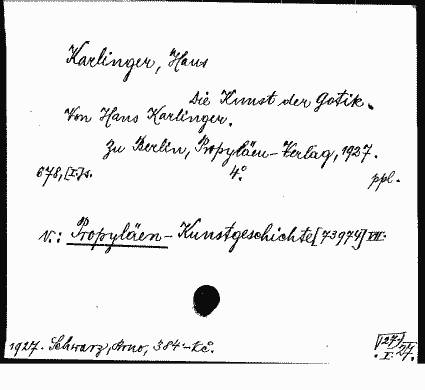 Karlinger, Hans
Die Kunst der Gotik.
Von Hans Karlinger.
Zu Berlin, Propyläen-Verlag, 1927.
678, [I] s. 4° ppl.
V.: Propyläen-Kunstgeschichte [73974] VII.
1927. Schwarz, Arno, 384.-Kč.
127
I. 27.